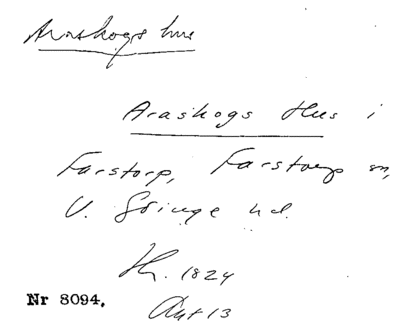 Araskogs hus
Araskogs Hus i
Farstorp, Farstorp sn,
V. Göinge hd.
Hr. 1824
Akt 13
Nr 8094.